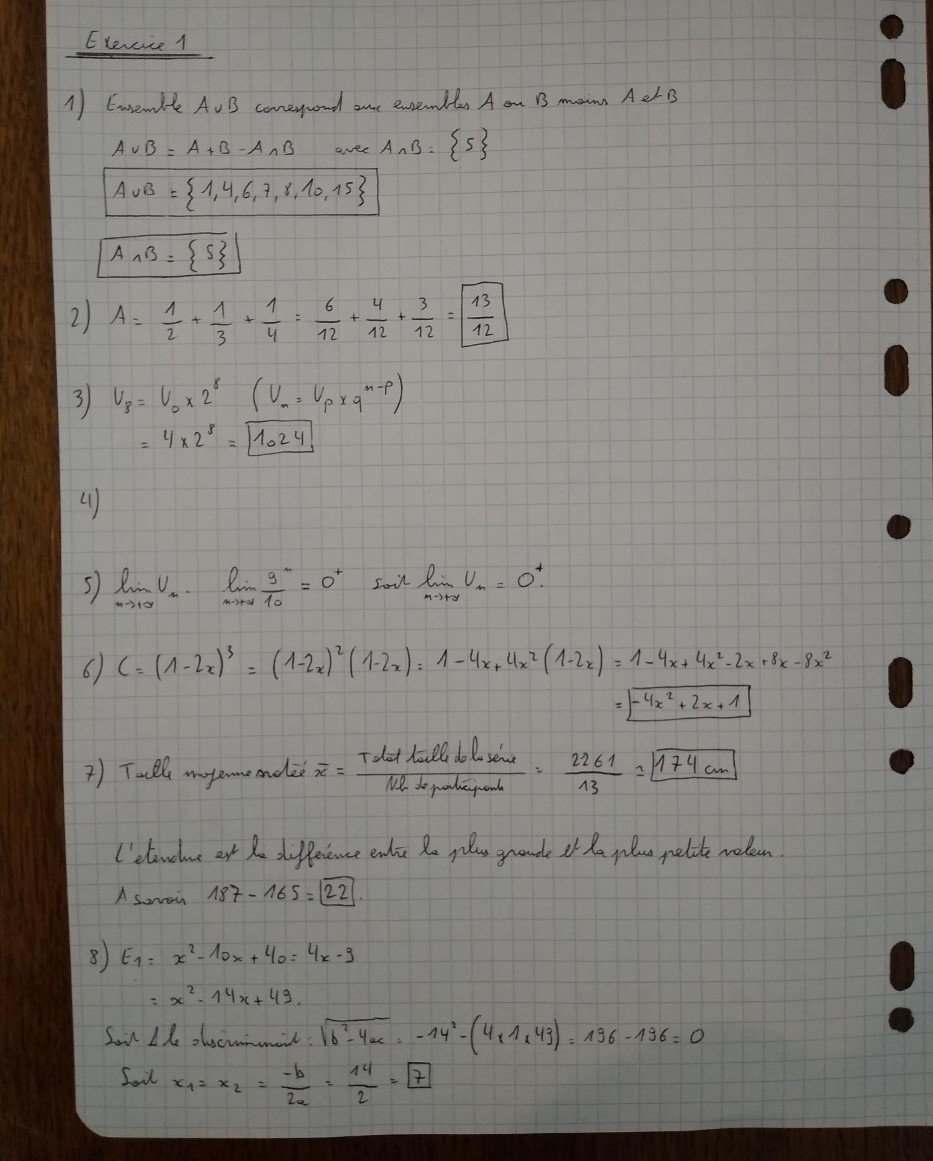 Exercice 1
1) Ensemble A∪B correspond aux ensembles A ou B moins A et B
A∪B = A+B-A∩B avec A∩B = {5}
A∪B = {1,4,6,7,8,10,15}
A∩B = {5}
2) A = 1/2 + 1/3 + 1/4 = 6/12 + 4/12 + 3/12 = 13/12
3) U₈ = U₀ × 2⁸ (Uₙ = Uₚ × qⁿ⁻ᵖ)
= 4 × 2⁸ = 1024
4)
5) lim Uₙ. lim 9ⁿ/10 = 0⁺ soit lim Uₙ = 0⁺.
n→+∞ n→+∞ n→+∞
6) C = (1-2x)³ = (1-2x)² (1-2x) = 1-4x+4x² (1-2x) = 1-4x+4x²-2x+8x-8x²
= -4x²+2x+1
7) Taille moyenne notée x̄ = Total taille de la série / Nb de participants = 2261/13 = 174 cm
L'etendue est la différence entre la plus grande et la plus petite valeur.
A savoir 187-165 = 22.
8) E₁ = x²-10x+40 = 4x-9
= x²-14x+49.
Soit Δ le discriminant : √b²-4ac = -14²-(4×1×49) = 196-196 = 0
Soit x₁ = x₂ = -b/2a = 14/2 = 7